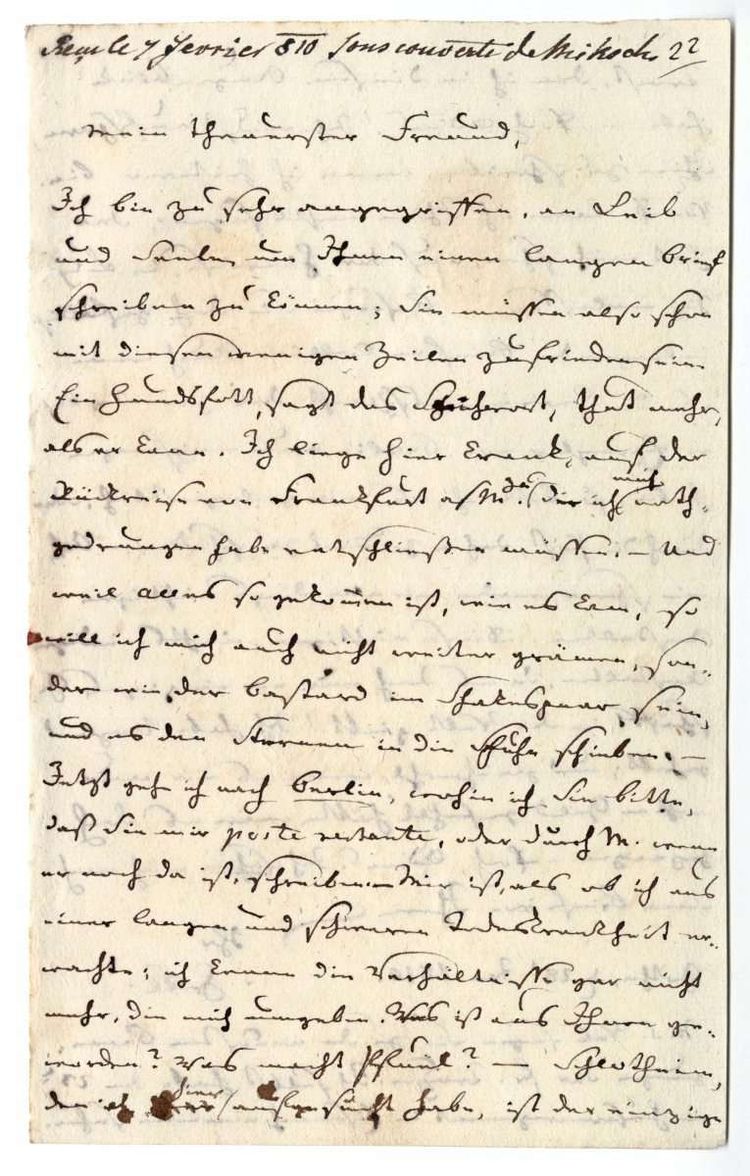 Reçu le 7 fevrier 810 sous couverte de Miksch 22
Mein theuerster Freund,
Ich bin zu sehr angegriffen, an Leib
und Seele, um Ihnen einen langen brief
schreiben zu können; Sie müssen also schon
mit diesen wenigen Zeilen zufrieden sein.
Ein Hundsfott, sagt das Sprichwort, thut mehr,
als er kann. Ich liege hier krank, auf der
Rückreise von Frankfurt a/M. da
mich
(der ich noth-
gedrungen habe entschließen müssen. — Und
weil Alles so gekommen ist, wie es kam, so
will ich mich auch nicht weiter grämen, son-
dern wie der bastard im Shakespear sein,
und es den Sternen in die Schuhe schieben. —
Jetzt gehe ich nach berlin, wohin ich Sie bitte,
daß Sie mir poste restante, oder durch M. wenn
er noch da ist, schreiben. Mir ist, als ob ich aus
einer langen und schweren Todeskrankheit er-
wachte; ich kenne die Verhältnisse gar nicht
mehr, die mich umgeben. Was ist aus Ihnen ge-
worden? Was macht Pfuël? — Schlotheim,
hier
den ich aufgesucht habe, ist der einzige